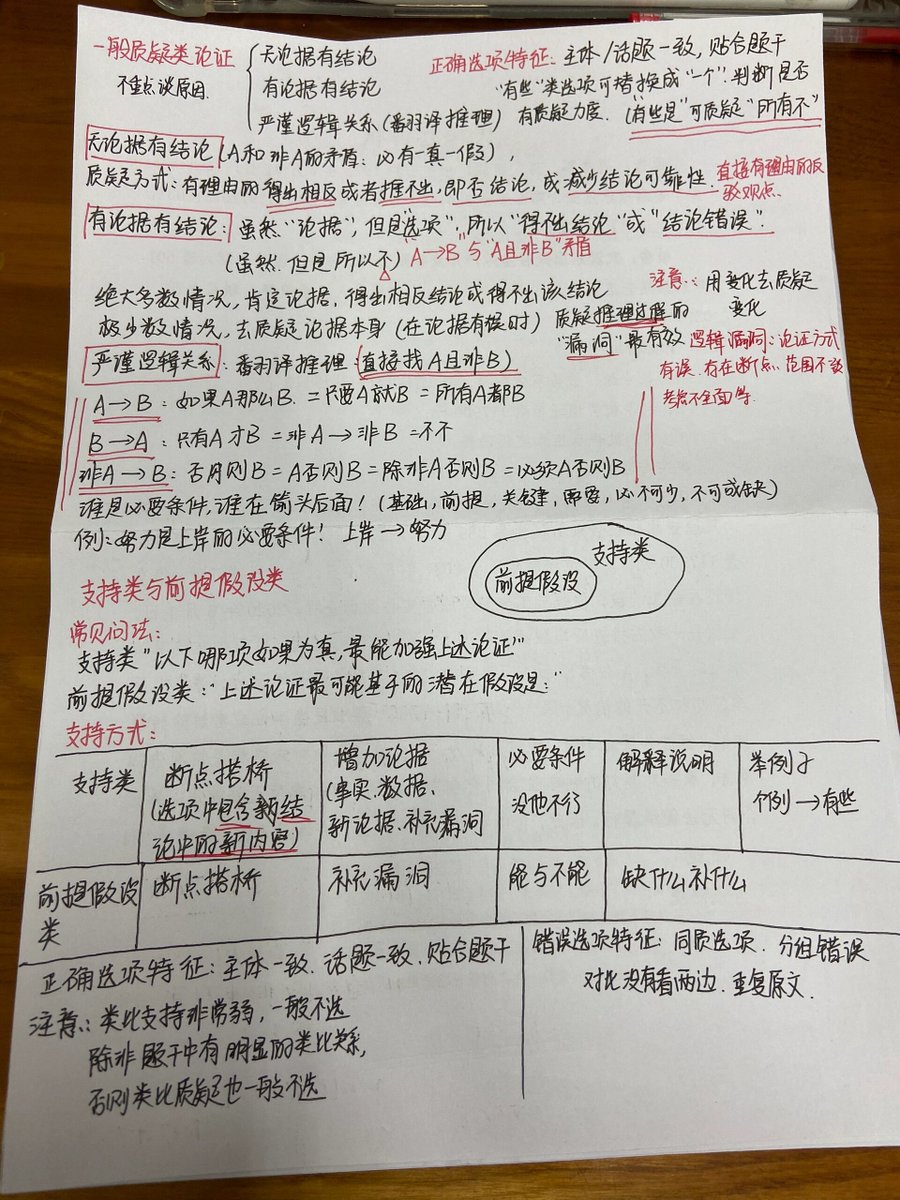 一般质疑类论证
不重点谈原因.
无论据有结论
有论据有结论
严谨逻辑关系(番羽译推理)
正确选项特征: 主体/话题一致, 贴合题干
"有些"类选项可替换成"一个"判断是否
有质疑力度. ("有些是"可质疑"所有不"
无论据有结论 (A和非A的矛盾: 必有一真一假),
质疑方式: 有理由的得出相反或者推不出, 即否结论, 或减少结论可靠性. 直接有理由的反
驳观点.
有论据有结论: 虽然"论据", 但是"选项", 所以"得不出结论"或"结论错误".
(虽然.但是 所以不) A→B 与"A且非B"矛盾
绝大多数情况, 肯定论据, 得出相反结论或得不出该结论
注意: 用变化去质疑
变化
极少数情况, 去质疑论据本身 (在论据有误时) 质疑推理过程的
"漏洞"最有效 逻辑漏洞: 论证方式
有误. 存在断点. 范围不致
考虑不全面等.
严谨逻辑关系: 番羽译推理 (直接找A且非B)
A→B: 如果A那么B. = 只要A就B = 所有A都B
B→A: 只有A才B = 非A→非B = 不不
非A→B: 否则B = A否则B = 除非A否则B = 必须A否则B
谁是必要条件, 谁在箭头后面! (基础, 前提, 关键, 需要, 必不可少, 不可或缺)
例: 努力是上岸的必要条件! 上岸→努力
支持类与前提假设类
前提假设 支持类
常见问法:
支持类"以下哪项如果为真, 最能加强上述论证"
前提假设类: "上述论证最可能基于的潜在假设是:"
支持方式:
支持类
断点搭桥
(选项中包含新结
论中的新内容)
增加论据
(事实.数据.
新论据.补充漏洞
必要条件
没他不行
解释说明
举例子
个例→有些
前提假设
类
断点搭桥
补充漏洞
能与不能
缺什么补什么
正确选项特征: 主体一致. 话题一致. 贴合题干
注意: 类比支持非常弱, 一般不选
除非题干中有明显的类比关系,
否则类比质疑也一般不选
错误选项特征: 同质选项. 分组错误
对比没有看两边. 重复原文.